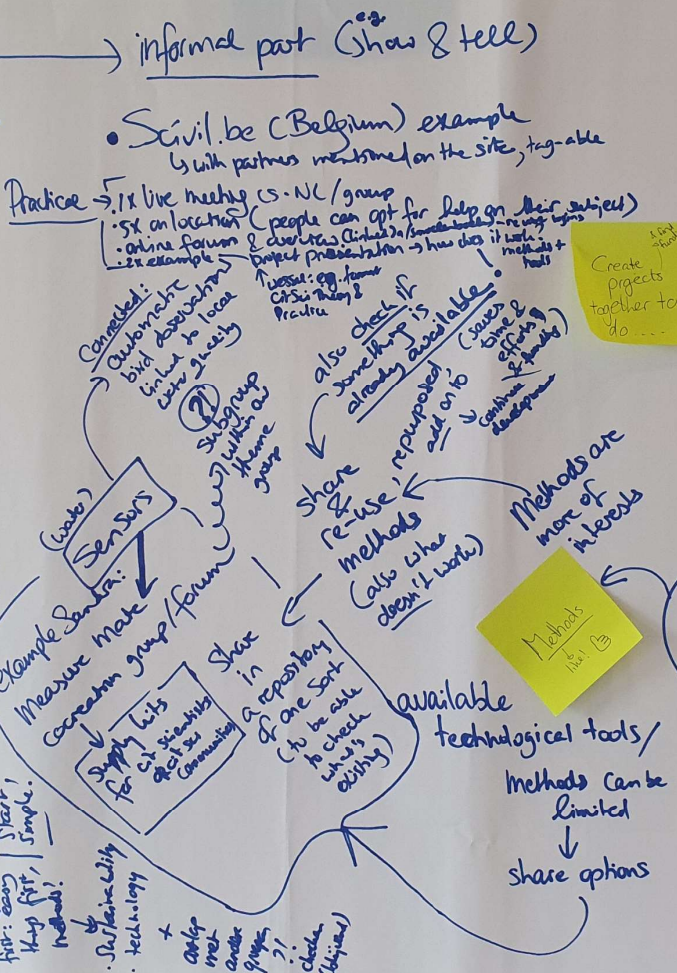 informal part (e.g. show & tell)
• Scivil.be (Belgium) example
↳ with partners mentioned on the site, tag-able
Practical → • 1x live meeting CS-NL/group
• 5x on location (people can opt for help on their subject)
• online forum & overview
• 2x example project presentation → how does it work:
methods +
tools
↑ vessel: e.g. format
CitSci Theory &
Practice
Create
projects
together to
do ....
Connected:
automatic
bird observations
linked to local
water quality
?!
subgroup
within our
theme
group
also check if
something is
already available.
(saves
time &
efforts &
& funding)
↓ continue
development
share
& re-use, repurposed,
add on to
methods
(also what
doesn't work)
Methods are
more of
interests
Methods
↳ like!
(water)
Sensors
example Sandra:
Measure Mate
cocreation group/forum
supply kits
for cit. scientists
communities
Share
in
a repository
of one sort
(to be able
to check
what's
existing)
available
technological tools/
methods can be
limited
↓
share options
start
simple.
first: easy
things first,
methods!
↓
• Sustainability
• technology
+
overlap
met
andere
groepen
?!
checken